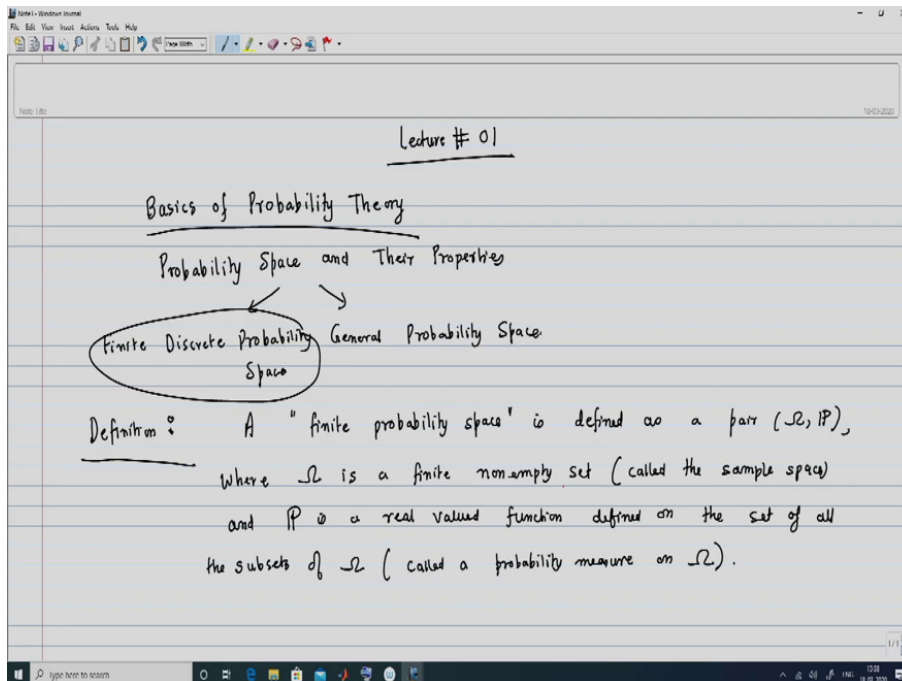 Note1 - Windows Journal
File Edit View Insert Actions Tools Help
Page Width
Note Title
18-03-2020
Lecture # 01
Basics of Probability Theory
Probability Space and Their Properties
Finite Discrete Probability General Probability Space.
Space
Definition : A "finite probability space" is defined as a pair (Ω, ℙ),
where Ω is a finite nonempty set (called the sample space)
and ℙ is a real valued function defined on the set of all
the subsets of Ω (called a probability measure on Ω).
1/1
Type here to search
ENG